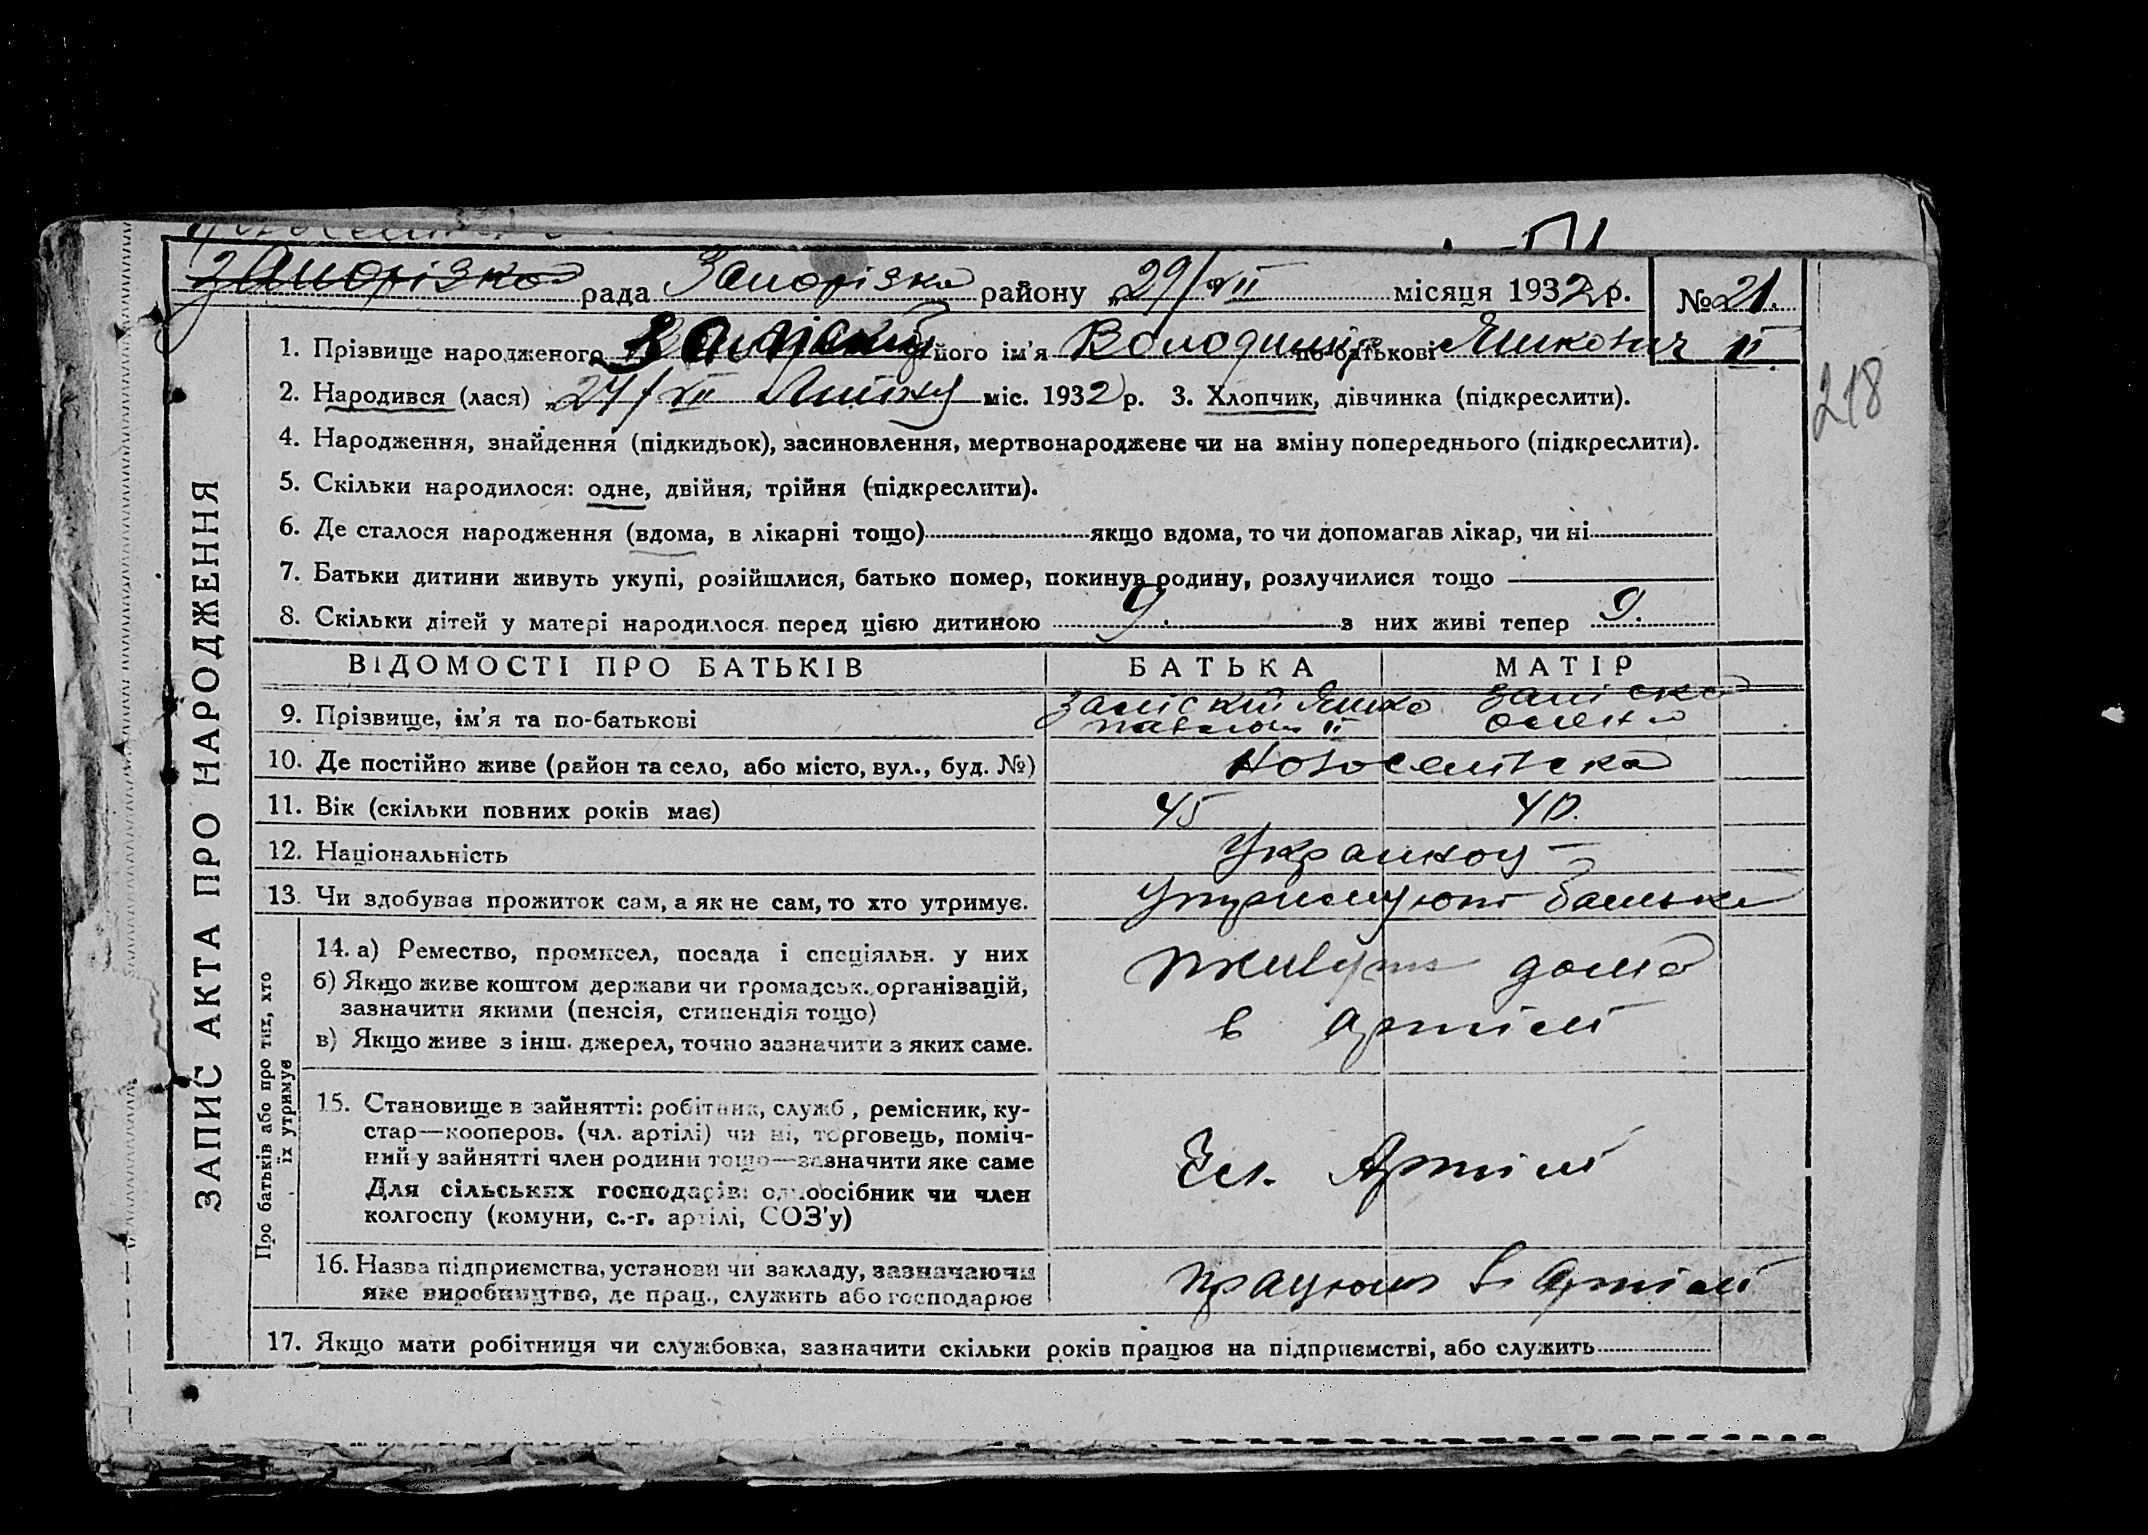 Запорізька рада Запорізька району „29/VII місяця 1932 р. № 21.
1. Прізвище народженого Заліский його ім'я Володимир по-батькові Яшкович II
2. Народився (лася) „27/VII Липня міс. 1932 р. 3. Хлопчик, дівчинка (підкреслити).
218
4. Народження, знайдення (підкидьок), засиновлення, мертвонароджене чи на зміну попереднього (підкреслити).
5. Скільки народилося: одне, двійня, трійня (підкреслити).
6. Де сталося народження (вдома, в лікарні тощо) якщо вдома, то чи допомагав лікар, чи ні
7. Батьки дитини живуть укупі, розійшлися, батько помер, покинув родину, розлучилися тощо
8. Скільки дітей у матері народилося перед цією дитиною 9. з них живі тепер 9.
ЗАПИС АКТА ПРО НАРОДЖЕННЯ
ВІДОМОСТІ ПРО БАТЬКІВ БАТЬКА МАТІР
9. Прізвище, ім'я та по-батькові Заліский Яшко Заліска
Павлович II Олена
10. Де постійно живе (район та село, або місто, вул., буд. №) Новоселитска
11. Вік (скільки повних років має) 45 40.
12. Національність Украинцу
13. Чи здобуває прожиток сам, а як не сам, то хто утримує. утримуют батьки
Про батьків або про тих, хто
їх утримує
14. а) Ремество, промисел, посада і спеціяльн. у них живуть дома
б) Якщо живе коштом держави чи громадськ. організацій,
зазначити якими (пенсія, стипендія тощо) в артілі
в) Якщо живе з інш. джерел, точно зазначити з яких саме.
15. Становище в зайнятті: робітник, служб, ремісник, ку-
стар—кооперов. (чл. артілі) чи ні, торговець, поміч-
ний у зайнятті член родини тощо—зазначити яке саме Чл. Артілі
Для сільських господарів: одноосібник чи член
колгоспу (комуни, с.-г. артілі, СОЗ'у)
16. Назва підприємства, установи чи закладу, зазначаючи працюют в Артілі
яке виробництво, де прац., служить або господарює
17. Якщо мати робітниця чи службовка, зазначити скільки років працює на підприємстві, або служить